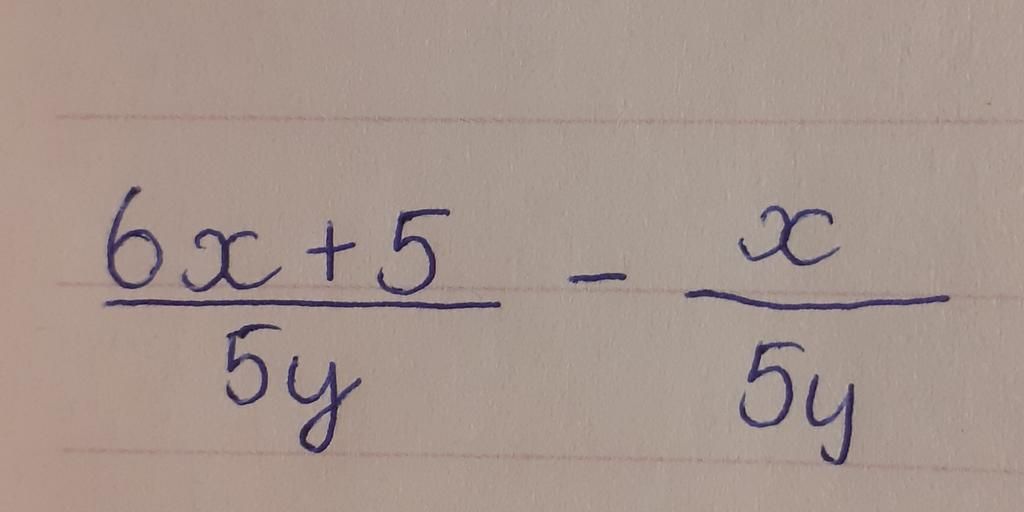 \frac{6x+5}{5y} - \frac{x}{5y}